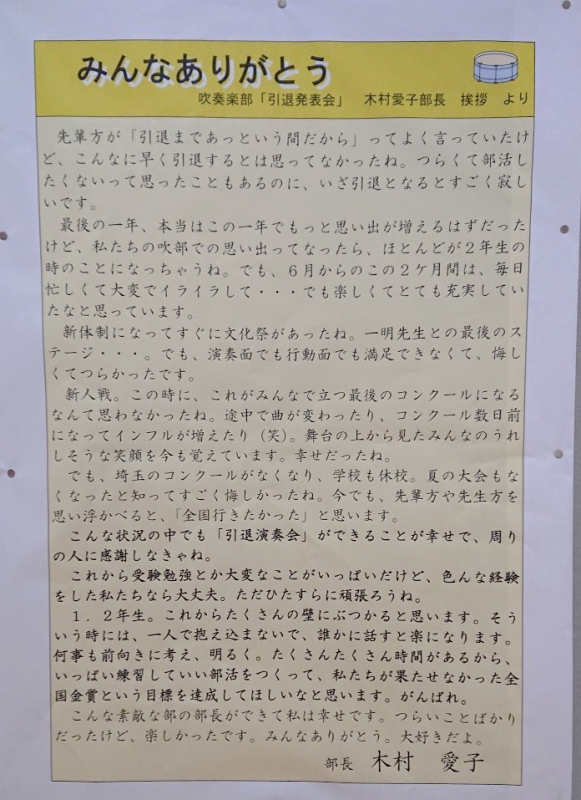 みんなありがとう
吹奏楽部「引退発表会」 木村愛子部長 挨拶 より
先輩方が「引退まであっという間だから」ってよく言っていたけ
ど、こんなに早く引退するとは思ってなかったね。つらくて部活し
たくないって思ったこともあるのに、いざ引退となるとすごく寂し
いです。
最後の一年、本当はこの一年でもっと思い出が増えるはずだった
けど、私たちの吹部での思い出ってなったら、ほとんどが２年生の
時のことになっちゃうね。でも、６月からのこの２ケ月間は、毎日
忙しくて大変でイライラして・・・でも楽しくてとても充実してい
たなと思っています。
新体制になってすぐに文化祭があったね。一明先生との最後のス
テージ・・・。でも、演奏面でも行動面でも満足できなくて、悔し
くてつらかったです。
新人戦。この時に、これがみんなで立つ最後のコンクールになる
なんて思わなかったね。途中で曲が変わったり、コンクール数日前
になってインフルが増えたり（笑）。舞台の上から見たみんなのうれ
しそうな笑顔を今も覚えています。幸せだったね。
でも、埼玉のコンクールがなくなり、学校も休校。夏の大会もな
くなったと知ってすごく悔しかったね。今でも、先輩方や先生方を
思い浮かべると、「全国行きたかった」と思います。
こんな状況の中でも「引退演奏会」ができることが幸せで、周り
の人に感謝しなきゃね。
これから受験勉強とか大変なことがいっぱいだけど、色んな経験
をした私たちなら大丈夫。ただひたすらに頑張ろうね。
１．２年生。これからたくさんの壁にぶつかると思います。そう
いう時には、一人で抱え込まないで、誰かに話すと楽になります。
何事も前向きに考え、明るく。たくさんたくさん時間があるから、
いっぱい練習していい部活をつくって、私たちが果たせなかった全
国金賞という目標を達成してほしいなと思います。がんばれ。
こんな素敵な部の部長ができて私は幸せです。つらいことばかり
だったけど、楽しかったです。みんなありがとう。大好きだよ。
部長 木村 愛子